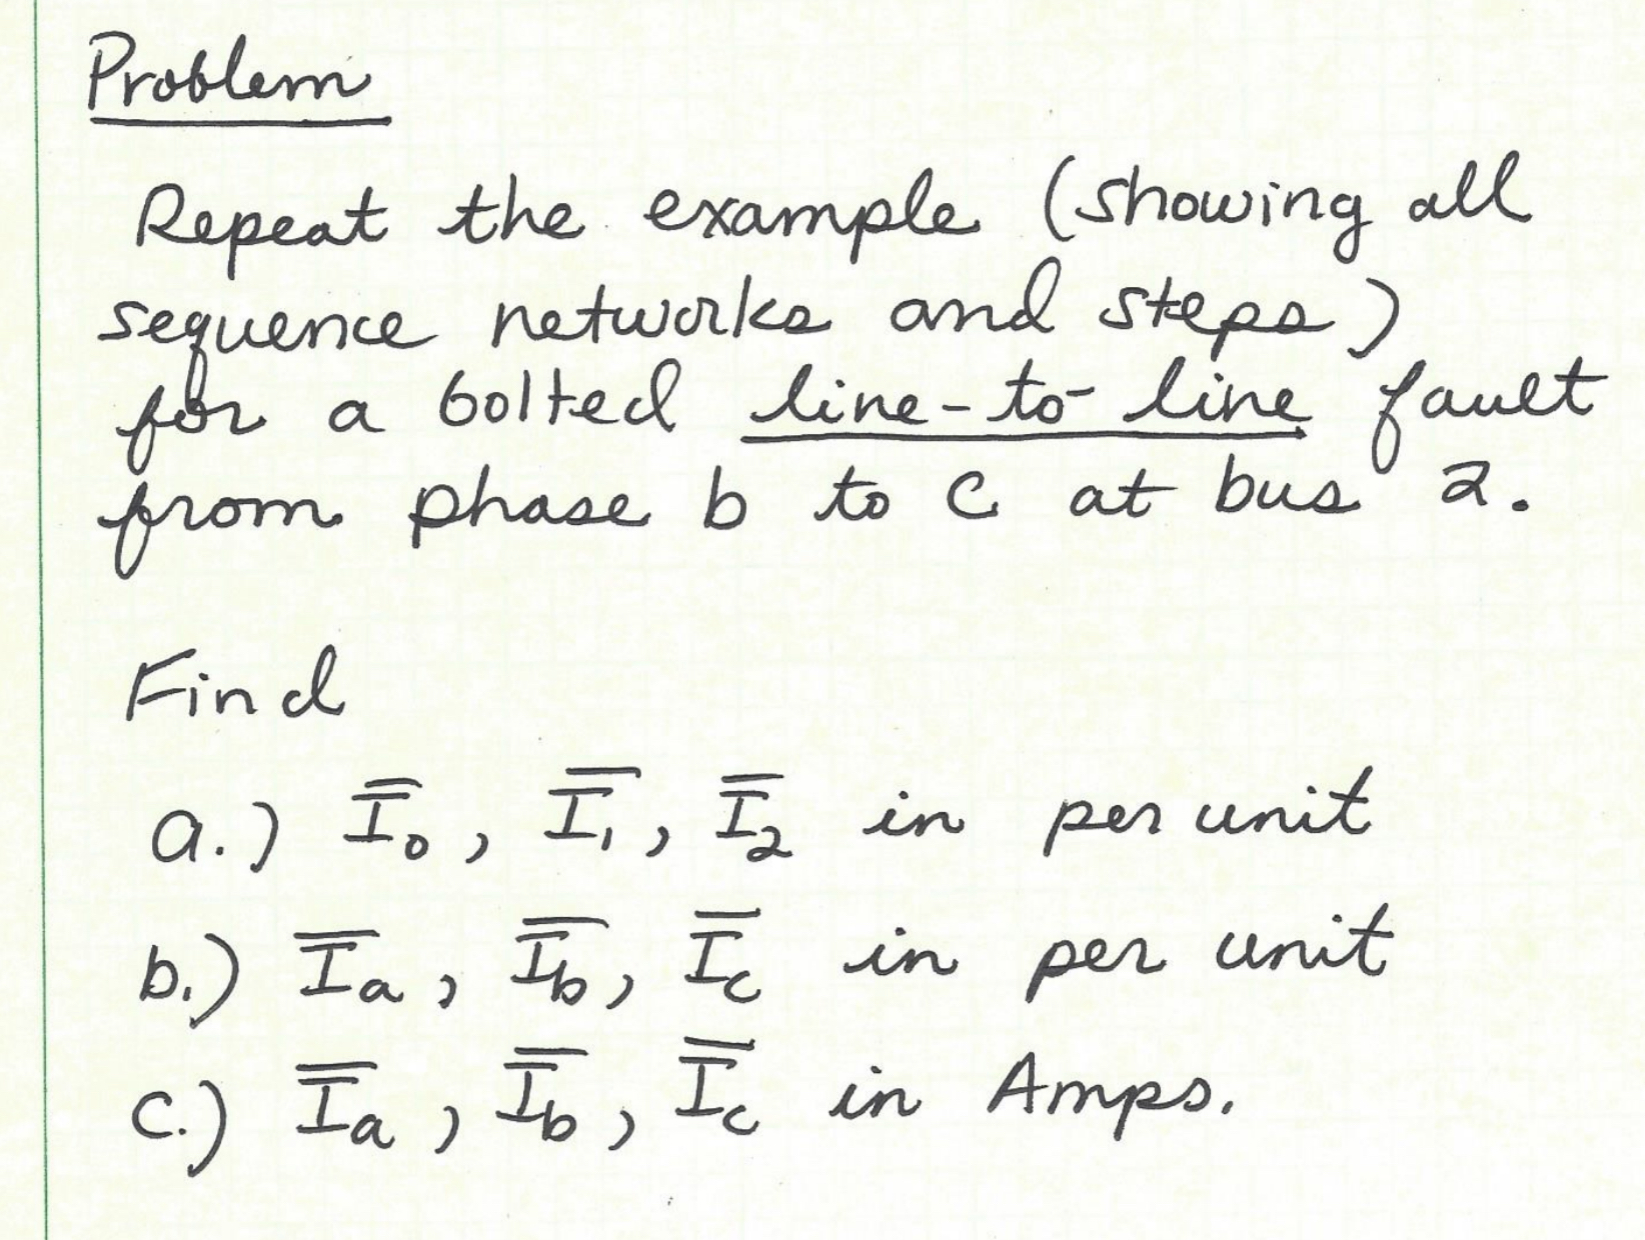 Problem
Repeat the example (showing all
sequence networks and steps)
for a bolted line-to-line fault
from phase b to c at bus 2.
Find
a.) I̅₀, I̅₁, I̅₂ in per unit
b.) I̅a, I̅b, I̅c in per unit
c.) I̅a, I̅b, I̅c in Amps.